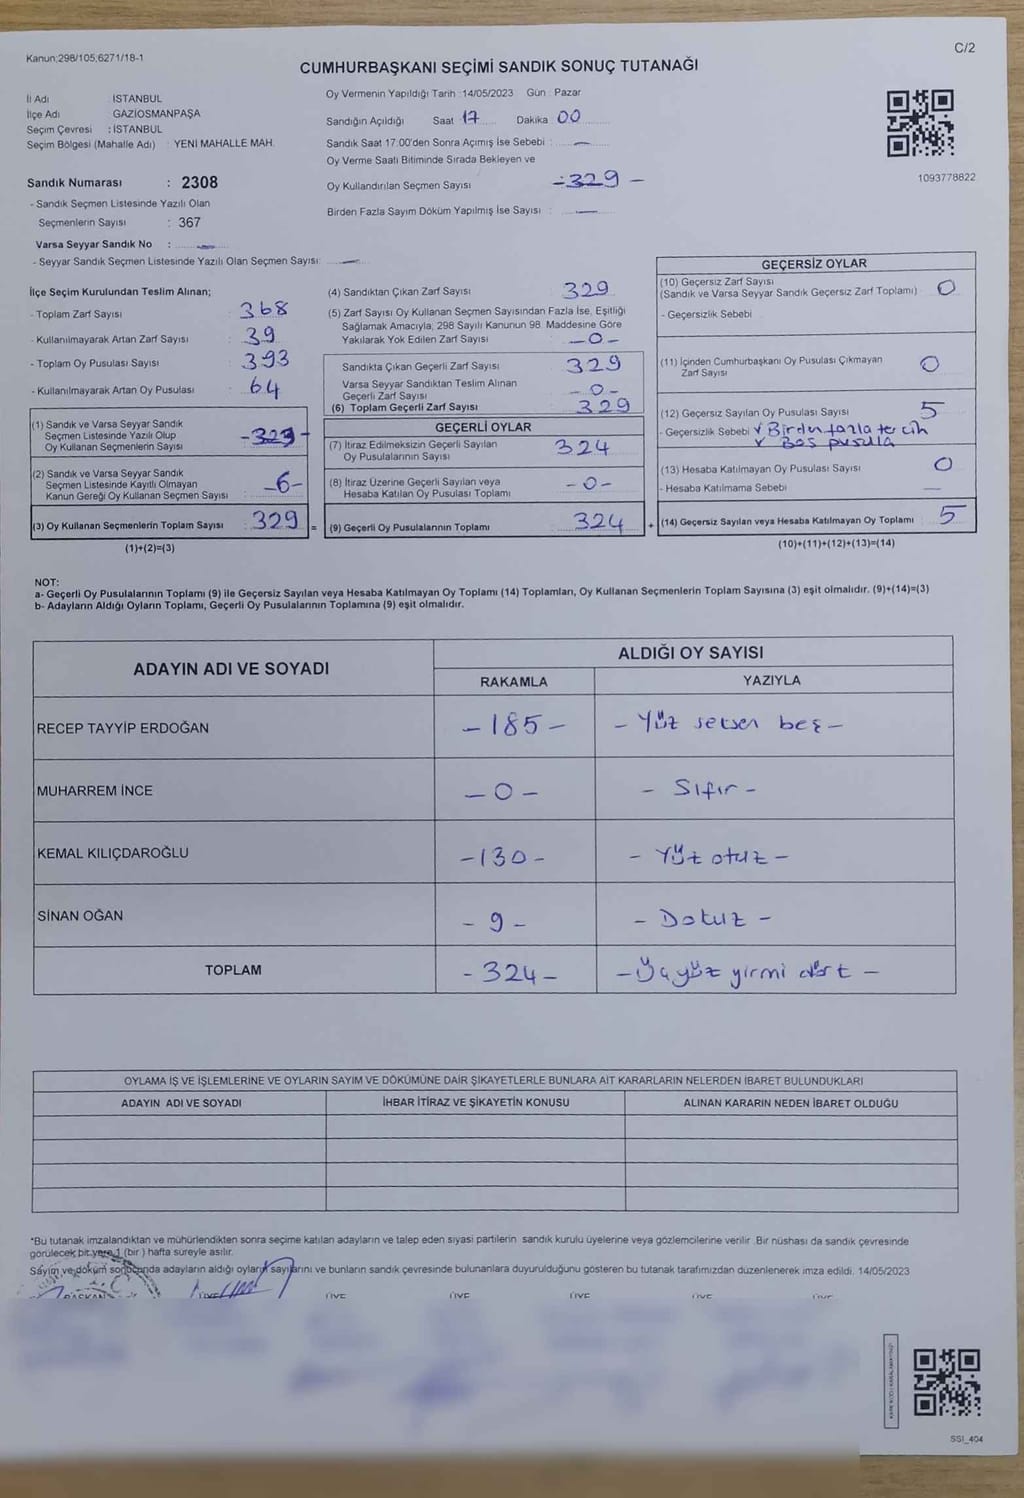 Kanun:298/105;6271/18-1
C/2
CUMHURBAŞKANI SEÇİMİ SANDIK SONUÇ TUTANAĞI
İl Adı : İSTANBUL
İlçe Adı GAZİOSMANPAŞA
Seçim Çevresi : İSTANBUL
Seçim Bölgesi (Mahalle Adı) : YENİ MAHALLE MAH.
Sandık Numarası : 2308
- Sandık Seçmen Listesinde Yazılı Olan
Seçmenlerin Sayısı : 367
Varsa Seyyar Sandık No : —
- Seyyar Sandık Seçmen Listesinde Yazılı Olan Seçmen Sayısı: —
Oy Vermenin Yapıldığı Tarih : 14/05/2023 Gün : Pazar
Sandığın Açıldığı Saat 17 Dakika 00
Sandık Saat 17:00'den Sonra Açımış İse Sebebi : —
Oy Verme Saati Bitiminde Sırada Bekleyen ve
Oy Kullandırılan Seçmen Sayısı -329-
Birden Fazla Sayım Döküm Yapılmış İse Sayısı : —
1093778822
İlçe Seçim Kurulundan Teslim Alınan;
- Toplam Zarf Sayısı 368
- Kullanılmayarak Artan Zarf Sayısı 39
- Toplam Oy Pusulası Sayısı 393
- Kullanılmayarak Artan Oy Pusulası 64
(1) Sandık ve Varsa Seyyar Sandık
Seçmen Listesinde Yazılı Olup
Oy Kullanan Seçmenlerin Sayısı -323-
(2) Sandık ve Varsa Seyyar Sandık
Seçmen Listesinde Kayıtlı Olmayan
Kanun Gereği Oy Kullanan Seçmen Sayısı -6-
(3) Oy Kullanan Seçmenlerin Toplam Sayısı 329 =
(1)+(2)=(3)
(4) Sandıktan Çıkan Zarf Sayısı 329
(5) Zarf Sayısı Oy Kullanan Seçmen Sayısından Fazla İse, Eşitliği
Sağlamak Amacıyla, 298 Sayılı Kanunun 98. Maddesine Göre
Yakılarak Yok Edilen Zarf Sayısı -0-
Sandıkta Çıkan Geçerli Zarf Sayısı 329
Varsa Seyyar Sandıktan Teslim Alınan
Geçerli Zarf Sayısı -0-
(6) Toplam Geçerli Zarf Sayısı 329
GEÇERLİ OYLAR
(7) İtiraz Edilmeksizin Geçerli Sayılan
Oy Pusulalarının Sayısı 324
(8) İtiraz Üzerine Geçerli Sayılan veya
Hesaba Katılan Oy Pusulası Toplamı -0-
(9) Geçerli Oy Pusulalarının Toplamı 324 +
GEÇERSİZ OYLAR
(10) Geçersiz Zarf Sayısı
(Sandık ve Varsa Seyyar Sandık Geçersiz Zarf Toplamı) 0
- Geçersizlik Sebebi
(11) İçinden Cumhurbaşkanı Oy Pusulası Çıkmayan
Zarf Sayısı 0
(12) Geçersiz Sayılan Oy Pusulası Sayısı 5
- Geçersizlik Sebebi v Birden fazla tercih
v Boş pusula
(13) Hesaba Katılmayan Oy Pusulası Sayısı 0
- Hesaba Katılmama Sebebi —
(14) Geçersiz Sayılan veya Hesaba Katılmayan Oy Toplamı 5
(10)+(11)+(12)+(13)=(14)
NOT:
a- Geçerli Oy Pusulalarının Toplamı (9) ile Geçersiz Sayılan veya Hesaba Katılmayan Oy Toplamı (14) Toplamları, Oy Kullanan Seçmenlerin Toplam Sayısına (3) eşit olmalıdır. (9)+(14)=(3)
b- Adayların Aldığı Oyların Toplamı, Geçerli Oy Pusulalarının Toplamına (9) eşit olmalıdır.
ADAYIN ADI VE SOYADI
ALDIĞI OY SAYISI
RAKAMLA YAZIYLA
RECEP TAYYİP ERDOĞAN -185- -Yüz seksen beş-
MUHARREM İNCE -0- -Sıfır-
KEMAL KILIÇDAROĞLU -130- -Yüz otuz-
SİNAN OĞAN -9- -Dokuz-
TOPLAM -324- -Üçyüz yirmi dört-
OYLAMA İŞ VE İŞLEMLERİNE VE OYLARIN SAYIM VE DÖKÜMÜNE DAİR ŞİKAYETLERLE BUNLARA AİT KARARLARIN NELERDEN İBARET BULUNDUKLARI
ADAYIN ADI VE SOYADI İHBAR İTİRAZ VE ŞİKAYETİN KONUSU ALINAN KARARIN NEDEN İBARET OLDUĞU
*Bu tutanak imzalandıktan ve mühürlendikten sonra seçime katılan adayların ve talep eden siyasi partilerin sandık kurulu üyelerine veya gözlemcilerine verilir. Bir nüshası da sandık çevresinde
görülecek bir yere 1 (bir ) hafta süreyle asılır.
Sayım ve döküm sonucunda adayların aldığı oyların sayılarını ve bunların sandık çevresinde bulunanlara duyurulduğunu gösteren bu tutanak tarafımızdan düzenlenerek imza edildi. 14/05/2023
BAŞKAN ÜYE ÜYE ÜYE ÜYE ÜYE ÜYE
SSI_404